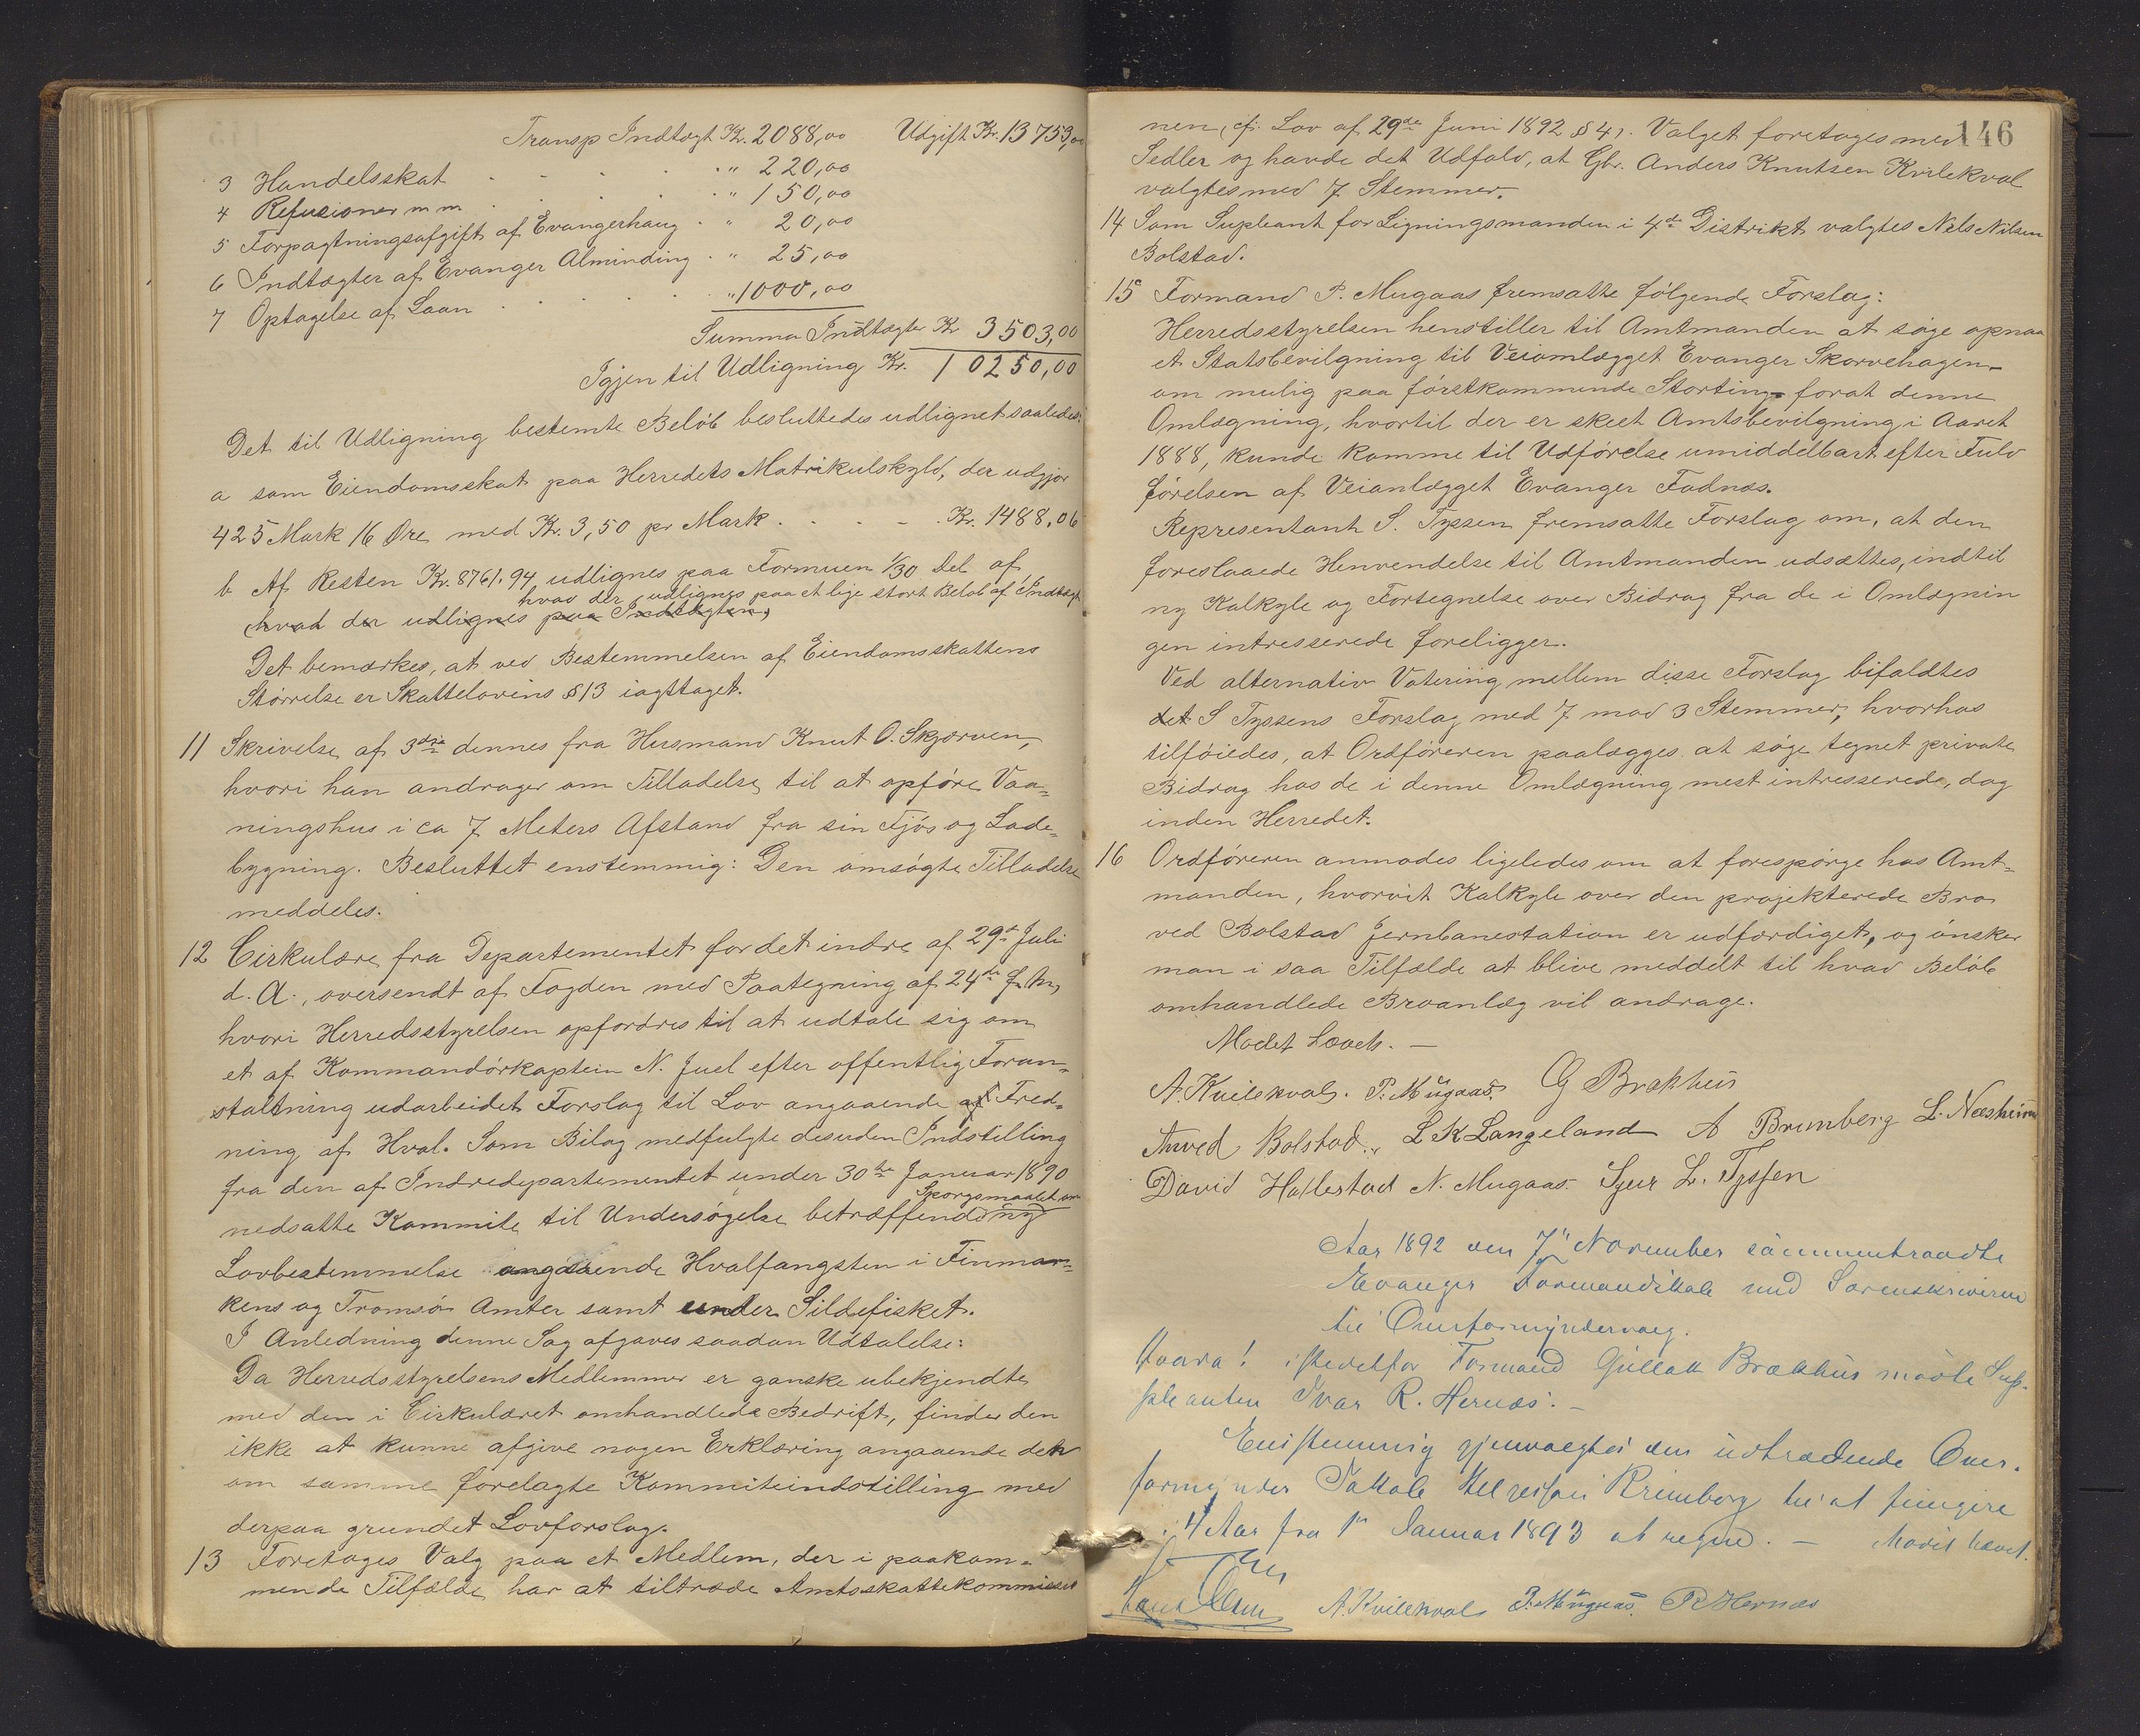 Transp Indtægt Kr. 2088,00 Udgift Kr. 13753,00
3 Handelsskat . . . . " 220,00
4 Refusioner m m . . . . " 150,00
5 Forpagtningsafgift af Evangerhaug . " 20,00
6 Indtægter af Evanger Alminding . " 25,00
7 Optagelse af Laan . . . . " 1000,00
Summa Indtægter Kr 3503,00
Igjen til Udligning Kr. 10250,00
Det til Udligning bestemte Beløb besluttedes udlignet saaledes:
a som Eiendomsskat paa Herredets Matrikulskyld, der udgjør
425 Mark 16 Øre med Kr. 3,50 pr Mark . . . . . Kr. 1488,06
b Af Resten Kr. 8761,94 udlignes paa Formuen 1/30 Del af
hvad der udlignes paa et lige stort Beløb af Indtægt
hvad der udlignes paa Indtægten,
Det bemærkes, at ved Bestemmelsen af Eiendomsskattens
Størrelse er Skattelovens § 13 iagttaget.
11 Skrivelse af 3die dennes fra Husmand Knut O. Skjerven,
hvori han andrager om Tilladelse til at opføre Vaa=
ningshus i ca 7 Meters Afstand fra sin Fjøs og Lade=
bygning. Besluttet enstemmig: Den omsøgte Tilladelse
meddeles.
12 Cirkulære fra Departementet for det indre af 29de Juli
d. A., oversendt af Fogden med Paategning af 24de f. M,
hvori Herredsstyrelsen opfordres til at udtale sig om
et af Kommandørkaptein N. Juel efter offentlig Foran=
staltning udarbeidet Forslag til Lov angaaende af Fred=
ning af Hval. Som Bilag medfulgte desuden Indstilling
fra den af Indredepartementet under 30te Januar 1890
Spørgsmaalet om
nedsatte Kommite til Undersøgelse betræffende ny
Lovbestemmelse angaaende Hvalfangsten i Finmar=
kens og Tromsø Amter samt under Sildefisket.
I Anledning denne Sag afgaves saadan Udtalelse:
Da Herredsstyrelsens Medlemmer er ganske ubekjendte
med den i Cirkulæret omhandlede Bedrift, finder den
ikke at kunne afgive nogen Erklæring angaaende den
om samme forelagte Kommiteindstilling med
derpaa grundet Lovforslag.
13 Foretoges Valg paa et Medlem, der i paakom=
mende Tilfælde har at tiltræde Amtsskattekommissio
146
nen, cfr. Lov af 29de Juni 1892 § 41. Valget foretoges med
Sedler og havde det Udfald, at Gbr. Anders Knutsen Kvilekval
valgtes med 7 Stemmer.
14 Som Supleant for Ligningsmanden i 4de Distrikt valgtes Nils Nilsen
Bolstad.
15 Formand P. Mugaas fremsatte følgende Forslag:
Herredsstyrelsen henstiller til Amtmanden at søge opnaa
et Statsbevilgning til Veiomlægget Evanger Skorvehagen
om mulig paa førstkommende Storting forat denne
Omlægning, hvortil der er skeet Amtsbevilgning i Aaret
1888, kunde komme til Udførelse umiddelbart efter Fuld
førelsen af Veianlægget Evanger Fadnæs.
Representant S. Tyssen fremsatte Forslag om, at den
foreslaaede Henvendelse til Amtmanden udsættes, indtil
ny Kalkyle og Fortegnelse over Bidrag fra de i Omlægnin
gen intresserede foreligger.
Ved alternativ Votering mellem disse Forslag bifaldtes
det S Tyssens Forslag med 7 mod 3 Stemmer, hvorhos
tilføiedes, at Ordføreren paalægges at søge tegnet private
Bidrag hos de i denne Omlægning mest intresserede, dog
inden Herredet.
16 Ordføreren anmodes ligeledes om at forespørge hos Amt=
manden, hvorvit Kalkyle over den projekterede Bro
ved Bolstad Jernbanestation er udfærdiget, og ønsker
man i saa Tilfælde at blive meddelt til hvad Beløb
omhandlede Broanlæg vil andrage.
Mødet hævet. —
A. Kvilekval. P. Mugaas. G Brækhus
Anved Bolstad. L K Langeland A Brunborg L. Næsheim
David Hallestad N. Mugaas. Sjur L. Tyssen
Aar 1892 den 7de November sammentraadte
Evanger Formandskab med Sorenskriveren
til Overformyndervalg.
istedetfor Formand Gullak Brækhus mødte Sup-
pleanten Ivar R. Hernæs. —
Enstemmig gjenvalgtes den udtrædende Over-
formynder Brunborg til at fungere
i 4 Aar fra 1ste Januar 1893 at regne. — Mødet hævet.
A. Kvilekval P. Mugaas. R Hernæs